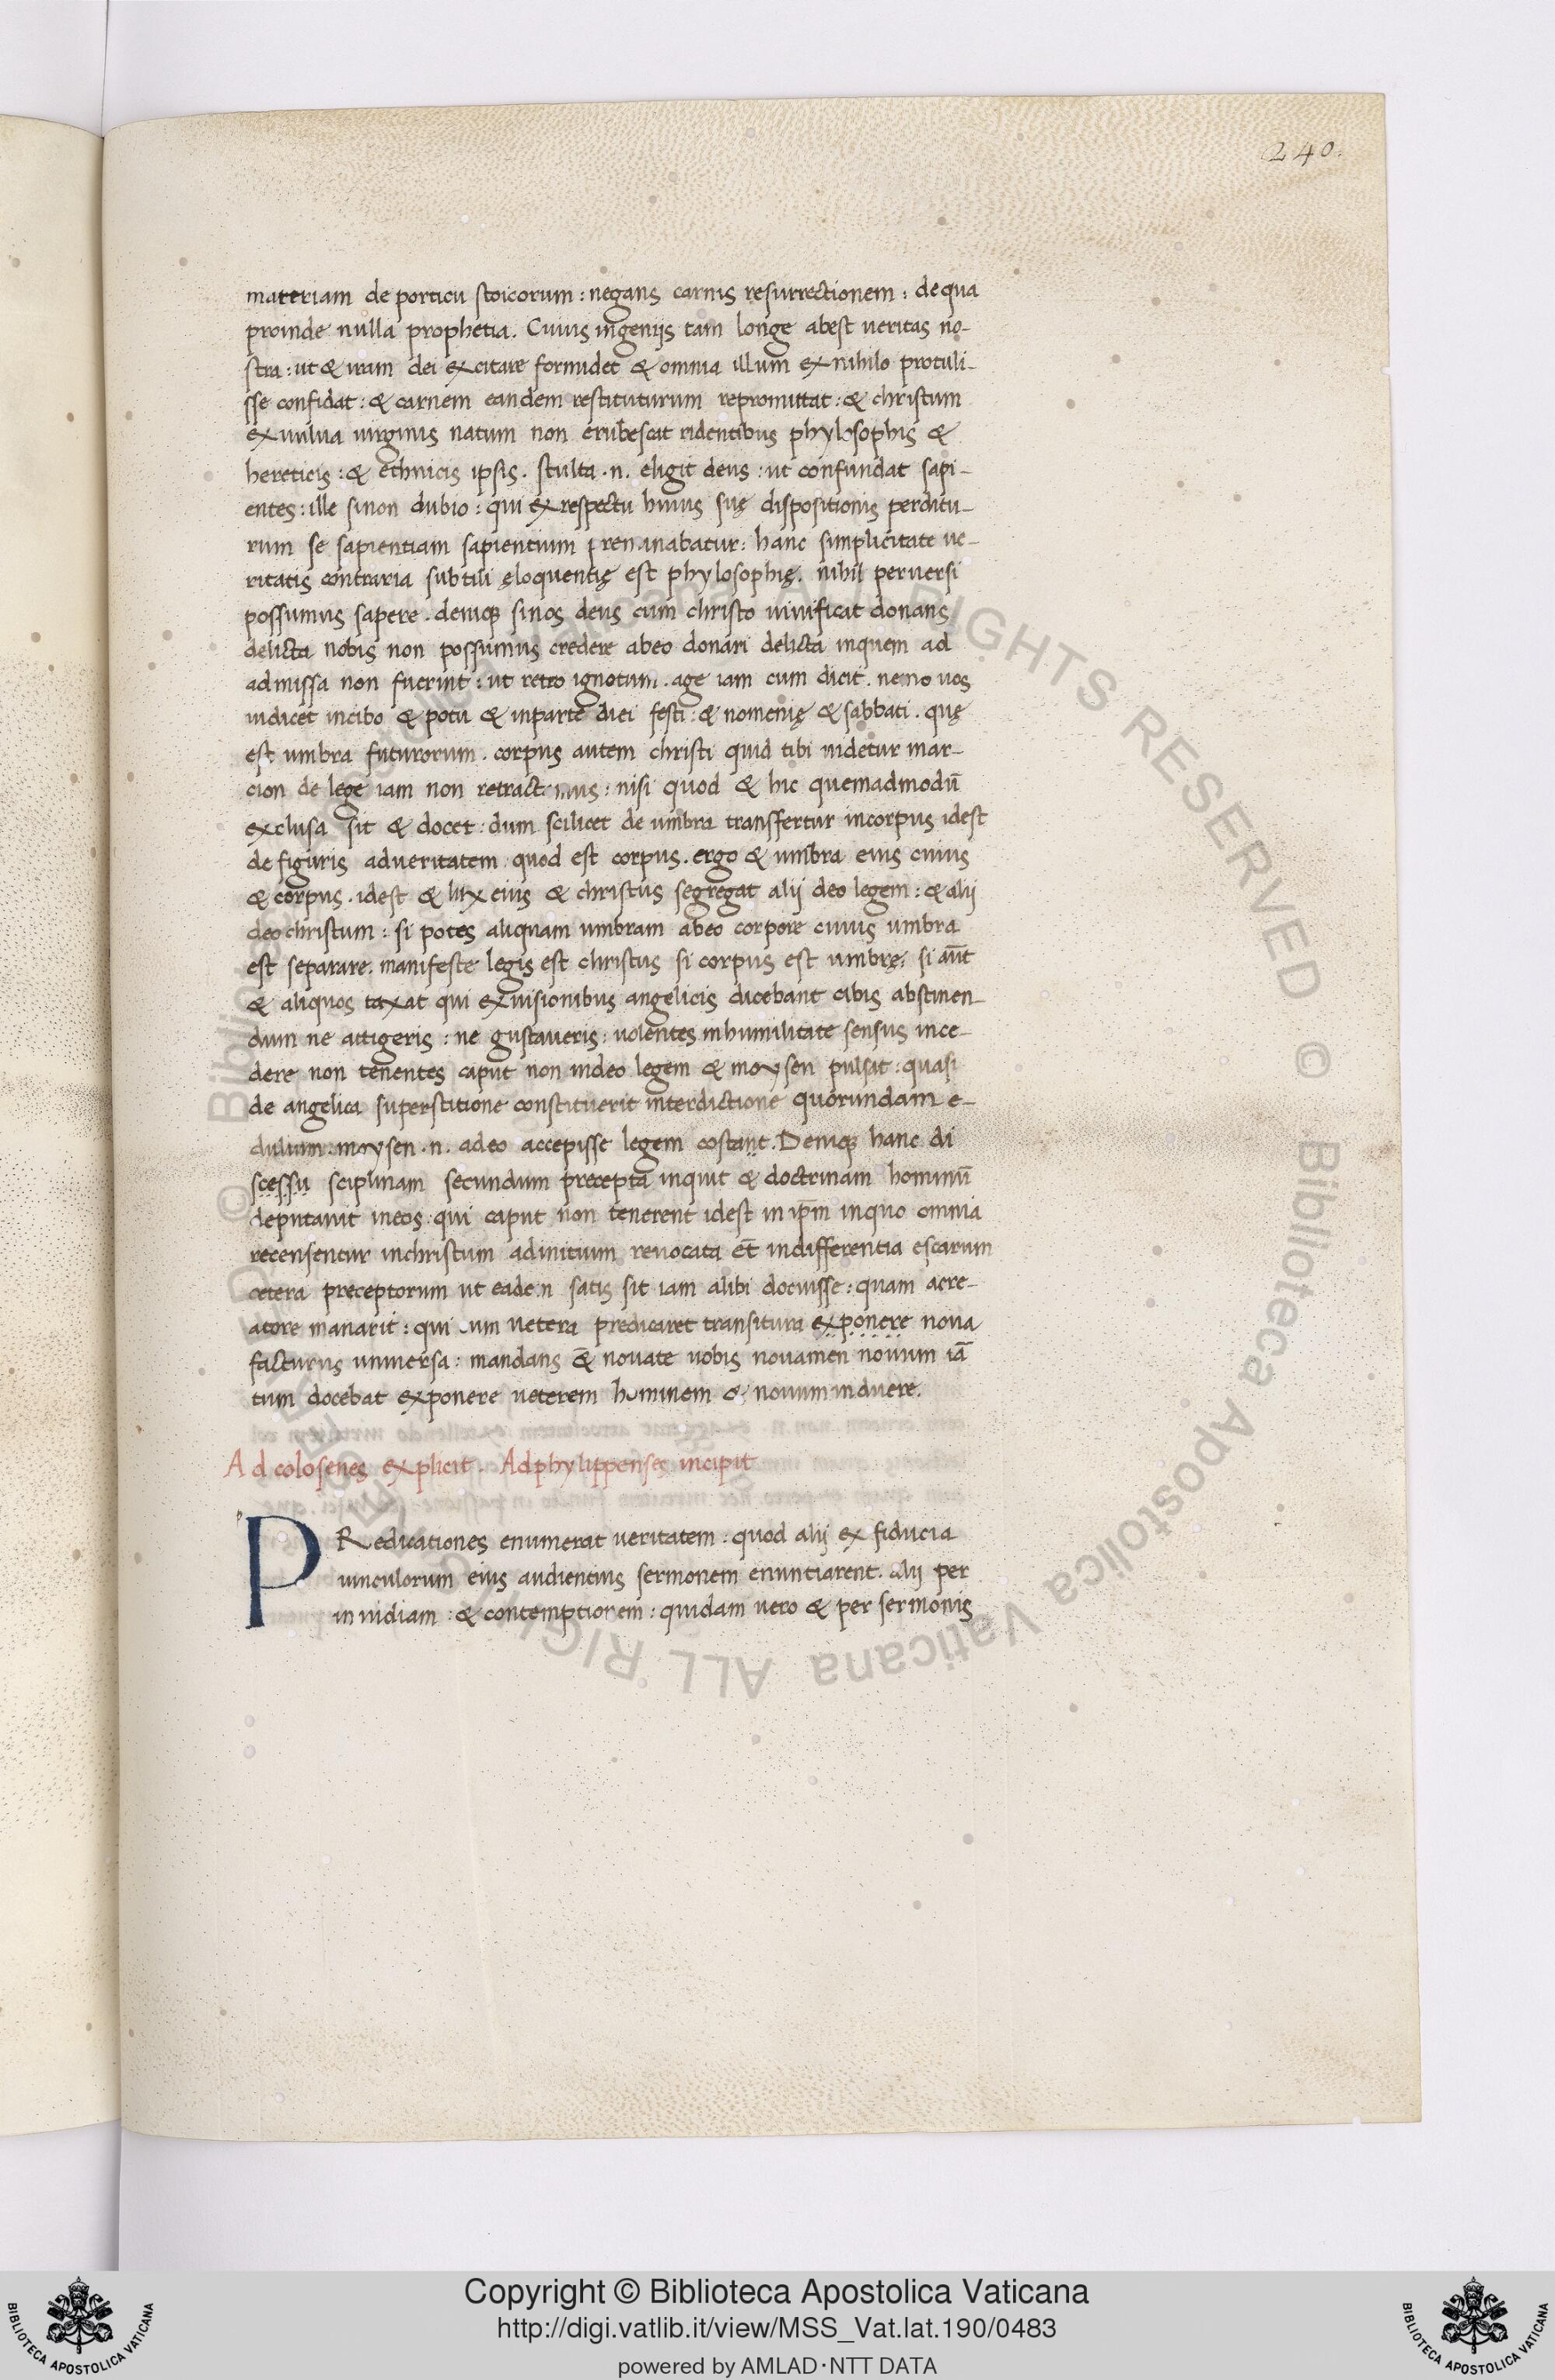 240.
materiam de porticu stoicorum : negans carnis resurrectionem : de qua
proinde nulla prophetia . Cuius ingenijs tam longe abest ueritas no-
stra : ut & iram dei excitare formidet & omnia illum ex nihilo protuli-
sse confidat : & carnem eandem restituturum repromittat : & christum
ex uulua uirginis natum non erubescat ridentibus phylosophis &
hereticis : & ethnicis ipsis . stulta .n. eligit deus : ut confundat sapi-
entes : ille sinon dubio : qui ex respectu huius suę dispositionis perditu-
rum se sapientiam sapientium : hanc simplicitate ue-
ritatis contraria subtili ęloquentię est phylosophię . nihil peruersi
possumus sapere . deniqꝫ sinos deus cum christo uiuificat donans
delicta nobis non possumus credere abeo donari delicta inquem ad
admissa non fuerint : ut retro ignotum . age iam cum dicit . nemo uos
iudicet incibo & potu & inparte diei festi : & nomenię & sabbati . quę
est umbra futurorum . corpus autem christi quid tibi uidetur mar-
cion de lege iam non : nisi quod & hic quemadmodū
exclusa sit & docet : dum scilicet de umbra transfertur incorpus idest
de figuris adueritatem quod est corpus . ergo & umbra eius cuius
& corpus . idest & lux eius & christus segregat alij deo legem : & alij
deo christum : si potes aliquam umbram abeo corpore cuius umbra
est separare . manifeste legis est christus si corpus est umbrę . si aūt
& aliquos taxat qui exuisionibus angelicis dicebant cibis abstinen-
dum ne attigeris : ne gustaueris : uolentes inhumilitate sensus ince-
dere non tenentes caput non indeo legem & moysen pulsat : quasi
de angelica superstitione constituerit interdictione quorundam e-
dulium . moysen .n. adeo accepisse legem costant . Deniqꝫ hanc di
scessu sciplinam secundum precepta inquit & doctrinam hominū
deputauit ineos : qui caput non tenerent idest in ip̄m inquo omnia
recensentur inchristum adinitium reuocata et̄ indifferentia escarum
cetera preceptorum ut satis sit iam alibi docuisse : quam acre-
atore manarit : qui cum uetera predicaret transitura exponere noua
facturus uniuersa : mandans & nouate uobis nouamen nouum iā
tum docebat exponere ueterem hominem & nouum induere .
Ad colosenes explicit . Adphylippenses incipit
PRedicationes enumerat ueritatem : quod alij ex fiducia
uinculorum eius audientius sermonem enuntiarent . alij per
inuidiam : & contemptionem : quidam uero & per sermonis
© Biblioteca Apostolica Vaticana ALL RIGHTS RESERVED
Copyright © Biblioteca Apostolica Vaticana
http://digi.vatlib.it/view/MSS_Vat.lat.190/0483
powered by AMLAD·NTT DATA
BIBLIOTECA APOSTOLICA VATICANA
BIBLIOTECA APOSTOLICA VATICANA